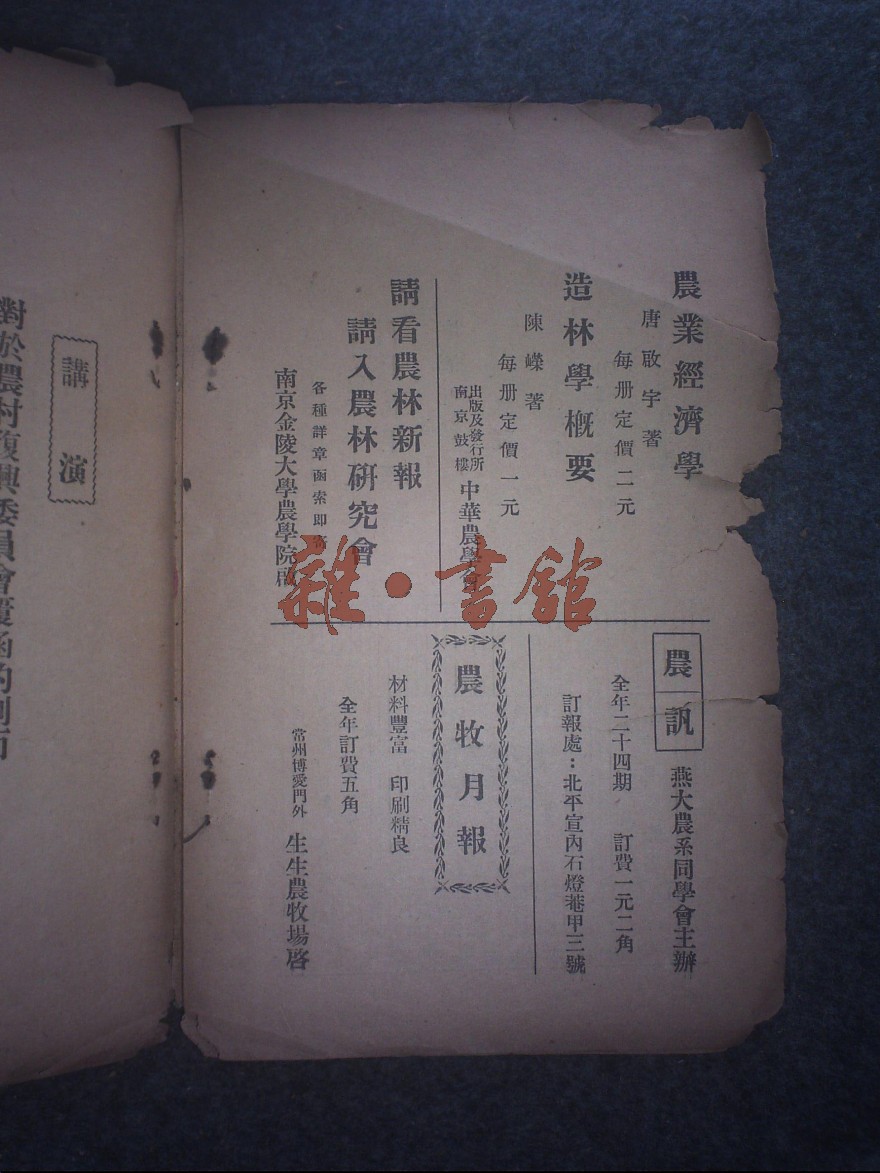 農業經濟學
唐啟宇著
每册定價二元
造林學概要
陳嶸著
每册定價一元
出版及發行所
南京鼓樓
中華農學會
請看農林新報
請入農林研究會
各種詳章函索即寄
南京金陵大學農學院啟
農訊
燕大農系同學會主辦
全年二十四期 訂費一元二角
訂報處：北平宣內石燈菴甲三號
農牧月報
材料豐富 印刷精良
全年訂費五角
常州博愛門外 生生農牧場啓
雜·書館
講演
對於農村復興委員會